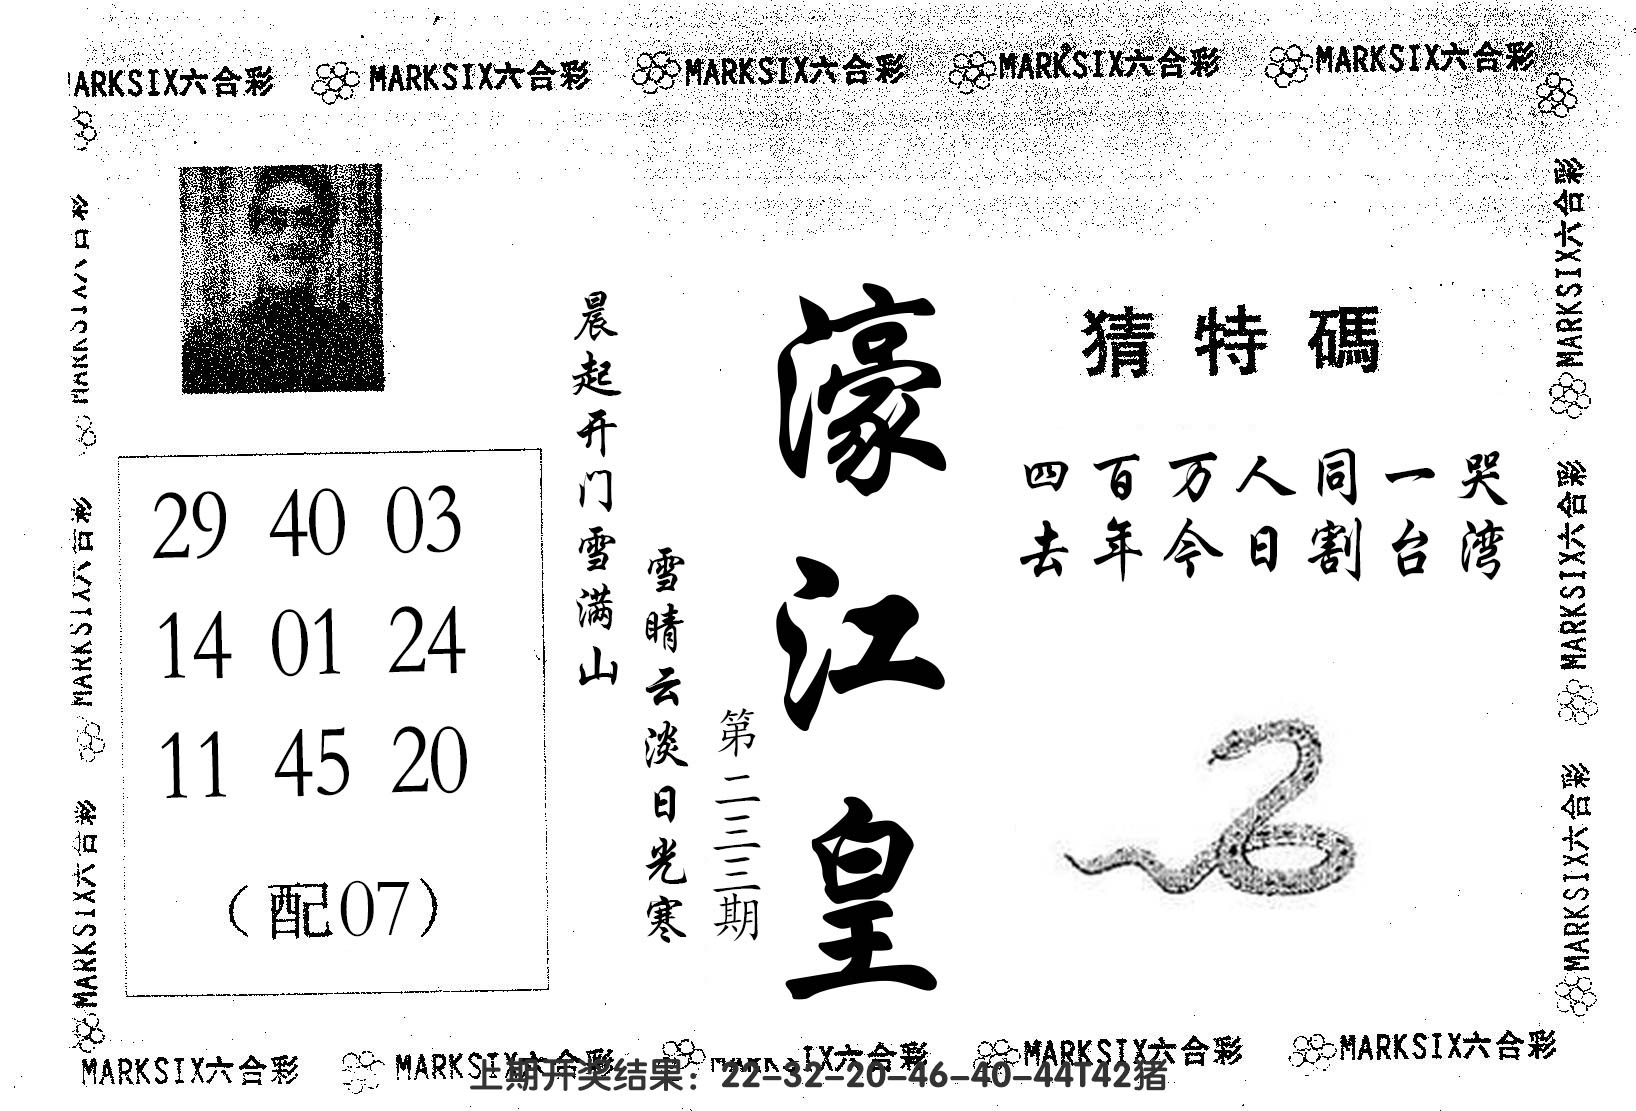 MARKSIX六合彩 MARKSIX六合彩 MARKSIX六合彩 MARKSIX六合彩 MARKSIX六合彩
猜特碼
四百万人同一哭
去年今日割台湾
濠江皇
第二三三期
晨起开门雪满山
雪晴云淡日光寒
29 40 03
14 01 24
11 45 20
（配07）
MARKSIX六合彩
MARKSIX六合彩
MARKSIX六合彩
MARKSIX六合彩
MARKSIX六合彩
MARKSIX六合彩
MARKSIX六合彩 MARKSIX六合彩 六合彩 MARKSIX六合彩 MARKSIX六合彩
上期开奖结果：22-32-20-46-40-44T42猪